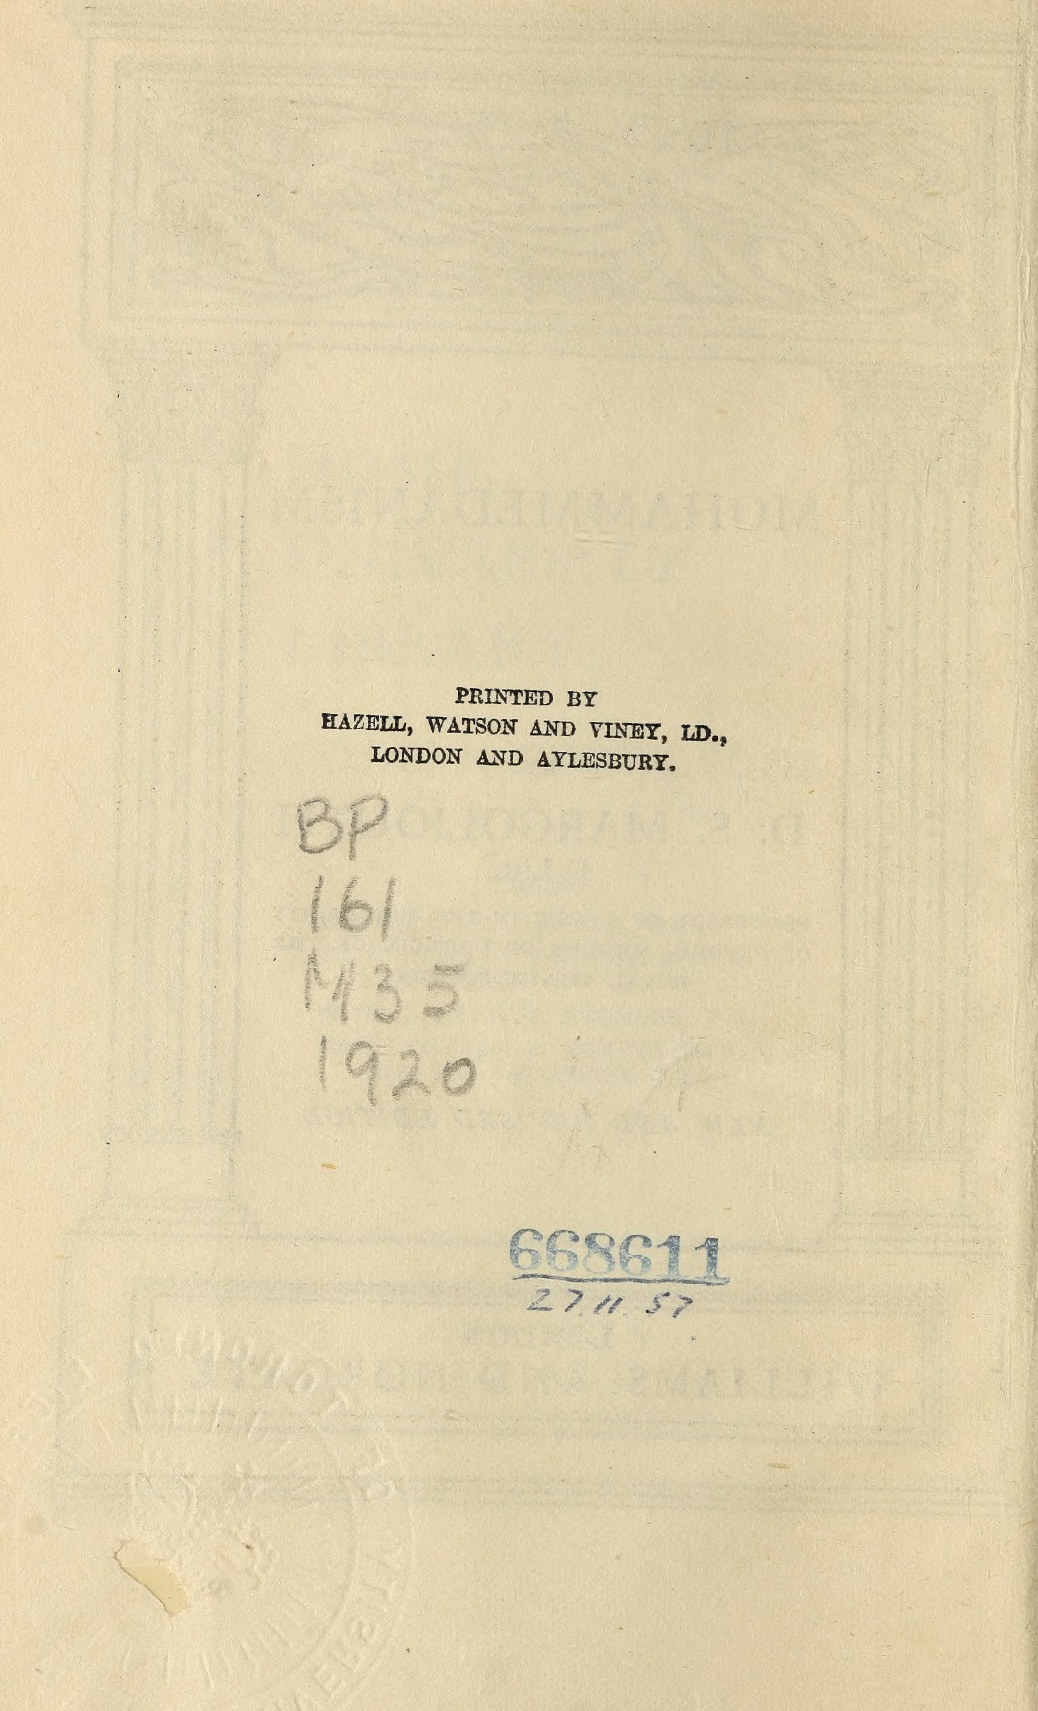 PRINTED BY
HAZELL, WATSON AND VINEY, LD.,
LONDON AND AYLESBURY.
BP
161
M35
1920
668611
27.11.57